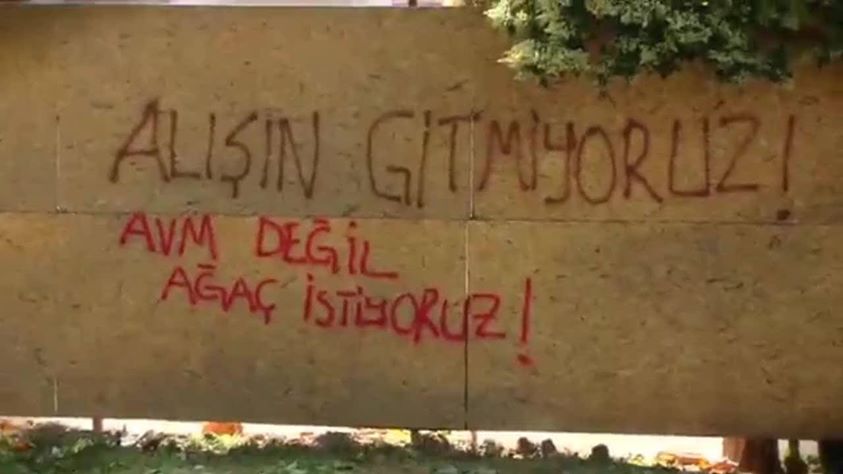 ALIŞIN GİTMİYORUZ!
AVM DEĞİL
AĞAÇ İSTİYORUZ!